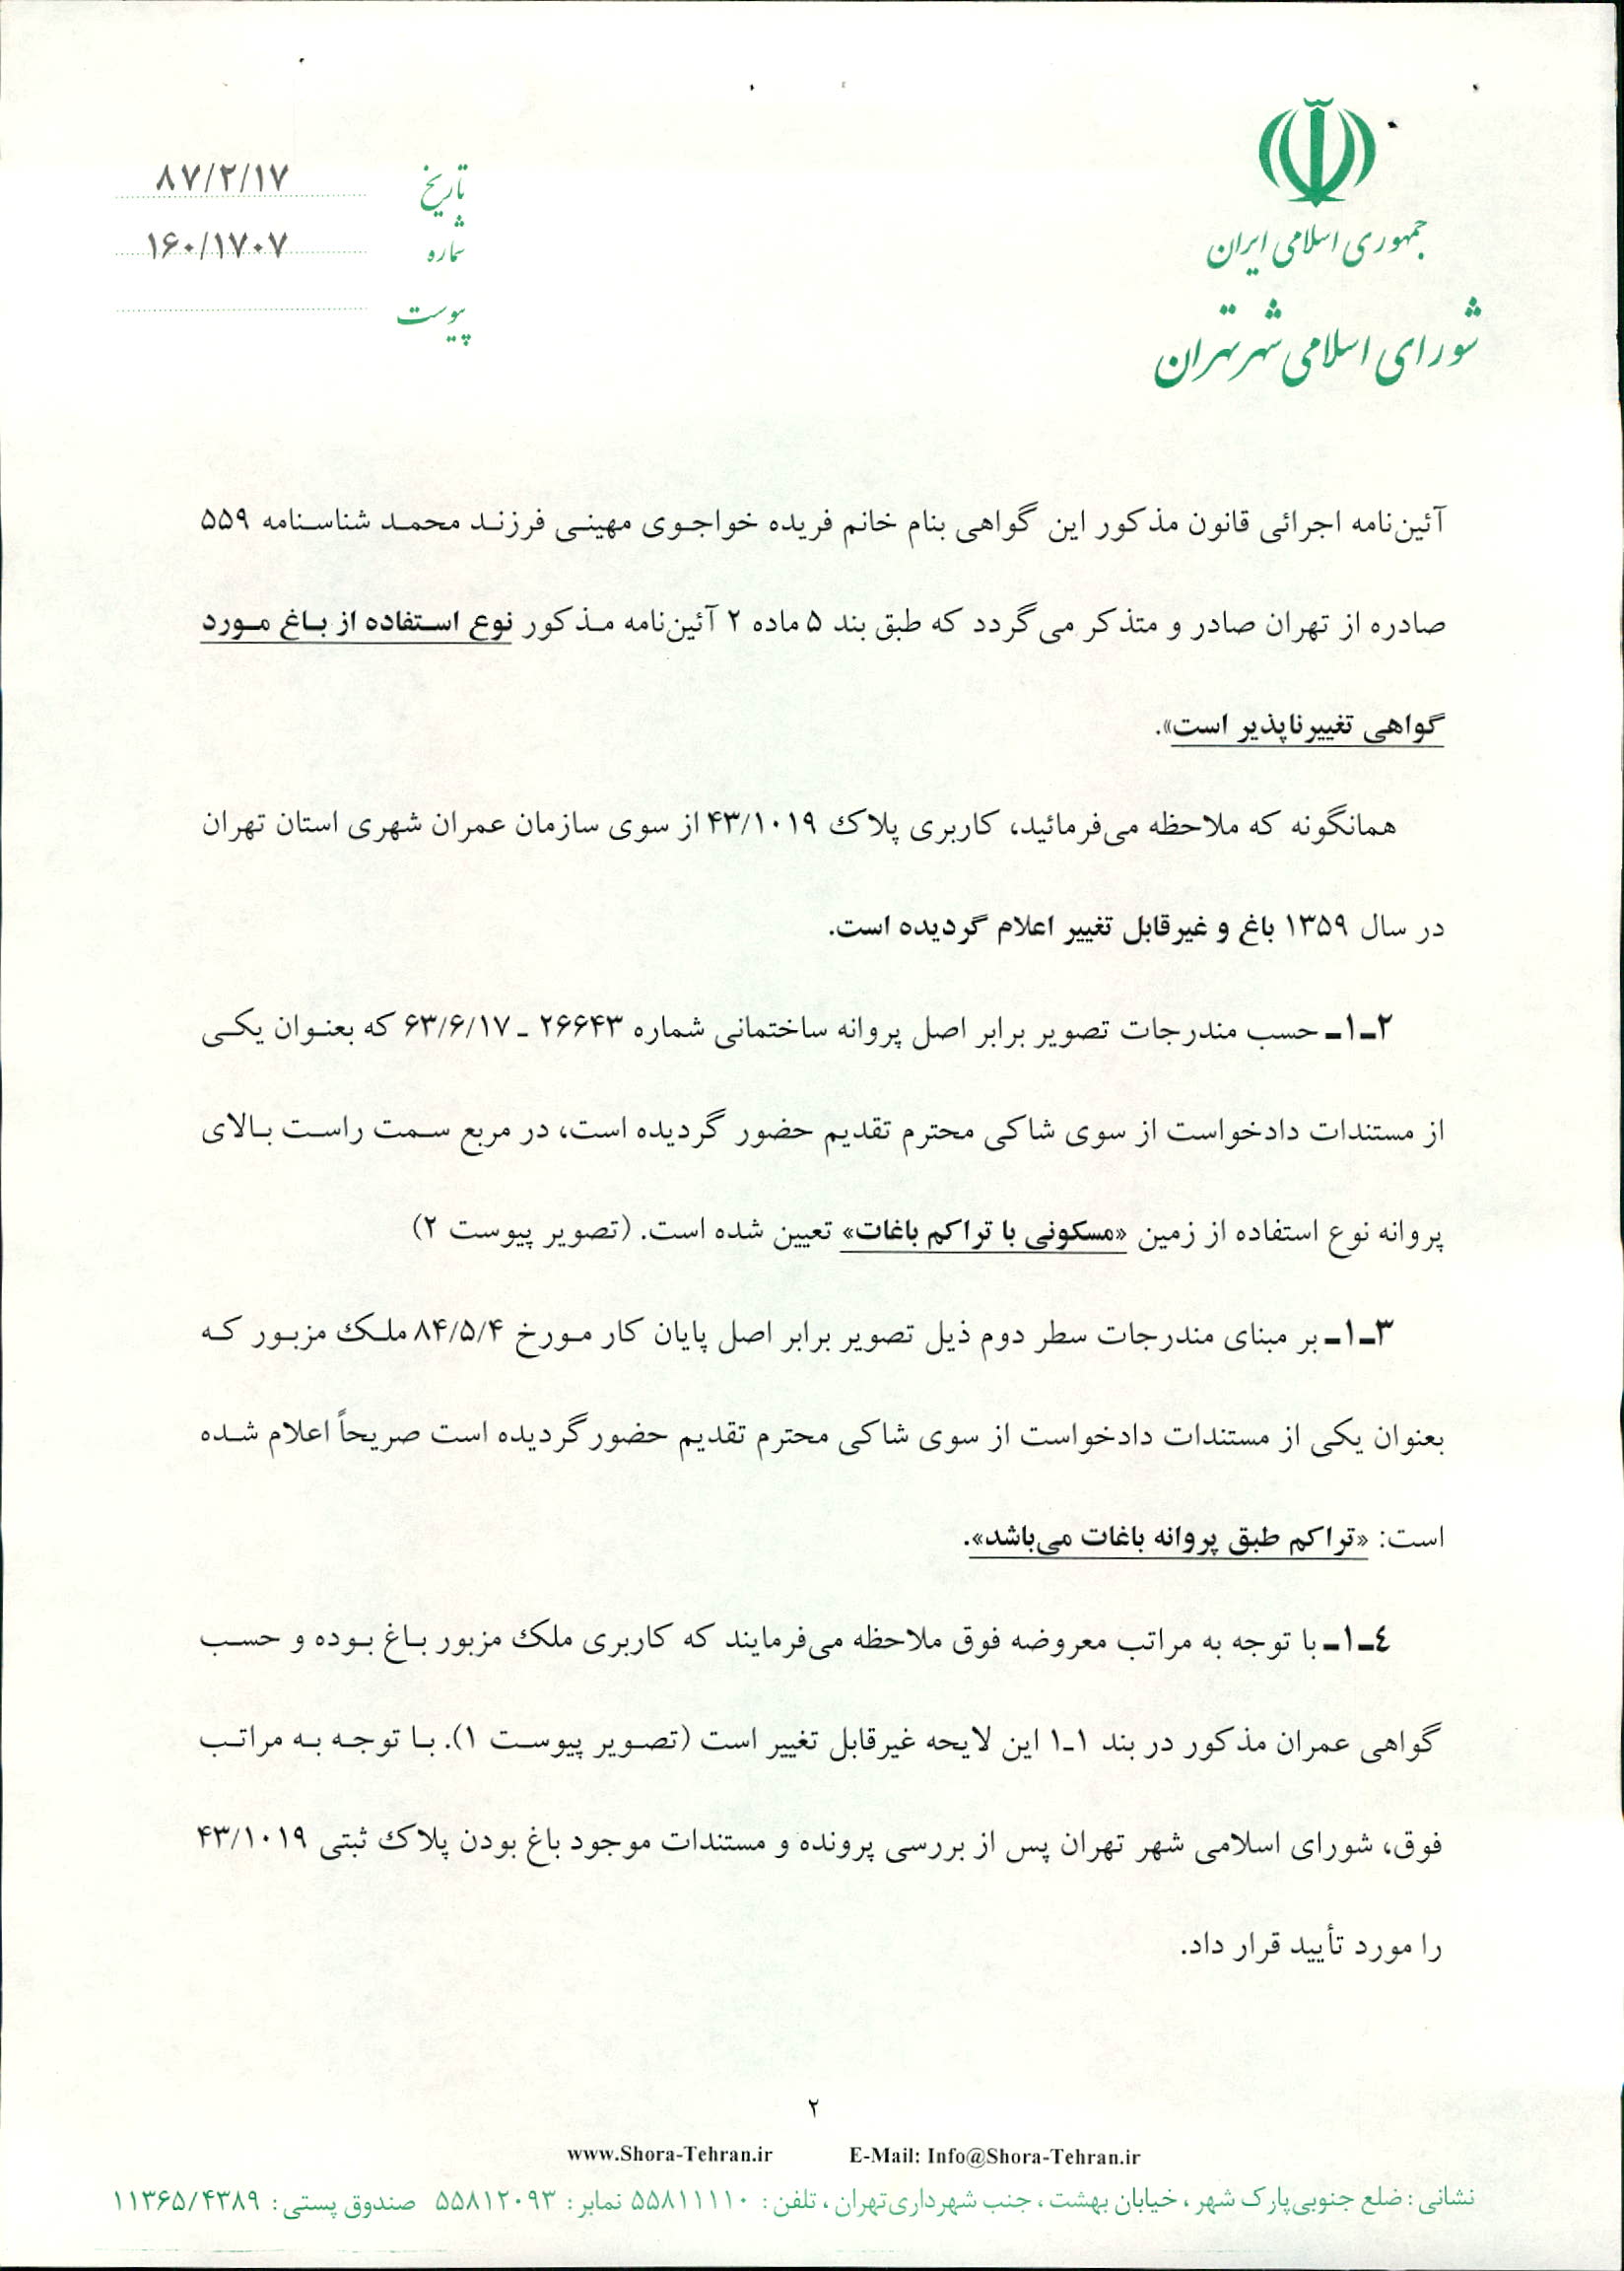 جمهوری اسلامی ایران
شورای اسلامی شهر تهران
تاریخ ۸۷/۲/۱۷
شماره ۱۶۰/۱۷۰۷
پیوست
آئین‌نامه اجرائی قانون مذکور این گواهی بنام خانم فریده خواجوی مهینی فرزند محمد شناسنامه ۵۵۹
صادره از تهران صادر و متذکر می‌گردد که طبق بند ۵ ماده ۲ آئین‌نامه مذکور نوع استفاده از باغ مورد
گواهی تغییرناپذیر است».
همانگونه که ملاحظه می‌فرمائید، کاربری پلاک ۴۳/۱۰۱۹ از سوی سازمان عمران شهری استان تهران
در سال ۱۳۵۹ باغ و غیرقابل تغییر اعلام گردیده است.
۲ـ۱ـ حسب مندرجات تصویر برابر اصل پروانه ساختمانی شماره ۲۶۶۴۳ ـ ۶۳/۶/۱۷ که بعنوان یکی
از مستندات دادخواست از سوی شاکی محترم تقدیم حضور گردیده است، در مربع سمت راست بالای
پروانه نوع استفاده از زمین «مسکونی با تراکم باغات» تعیین شده است. (تصویر پیوست ۲)
۳ـ۱ـ بر مبنای مندرجات سطر دوم ذیل تصویر برابر اصل پایان کار مورخ ۸۴/۵/۴ ملک مزبور که
بعنوان یکی از مستندات دادخواست از سوی شاکی محترم تقدیم حضور گردیده است صریحاً اعلام شده
است: «تراکم طبق پروانه باغات می‌باشد».
٤ـ۱ـ با توجه به مراتب معروضه فوق ملاحظه می‌فرمایند که کاربری ملک مزبور باغ بوده و حسب
گواهی عمران مذکور در بند ۱ـ۱ این لایحه غیرقابل تغییر است (تصویر پیوست ۱). با توجه به مراتب
فوق، شورای اسلامی شهر تهران پس از بررسی پرونده و مستندات موجود باغ بودن پلاک ثبتی ۴۳/۱۰۱۹
را مورد تأیید قرار داد.
۲
www.Shora-Tehran.ir E-Mail: Info@Shora-Tehran.ir
نشانی: ضلع جنوبی پارک شهر، خیابان بهشت، جنب شهرداری تهران، تلفن: ۵۵۸۱۱۱۱۰ نمابر: ۵۵۸۱۲۰۹۳ صندوق پستی: ۱۱۳۶۵/۴۳۸۹